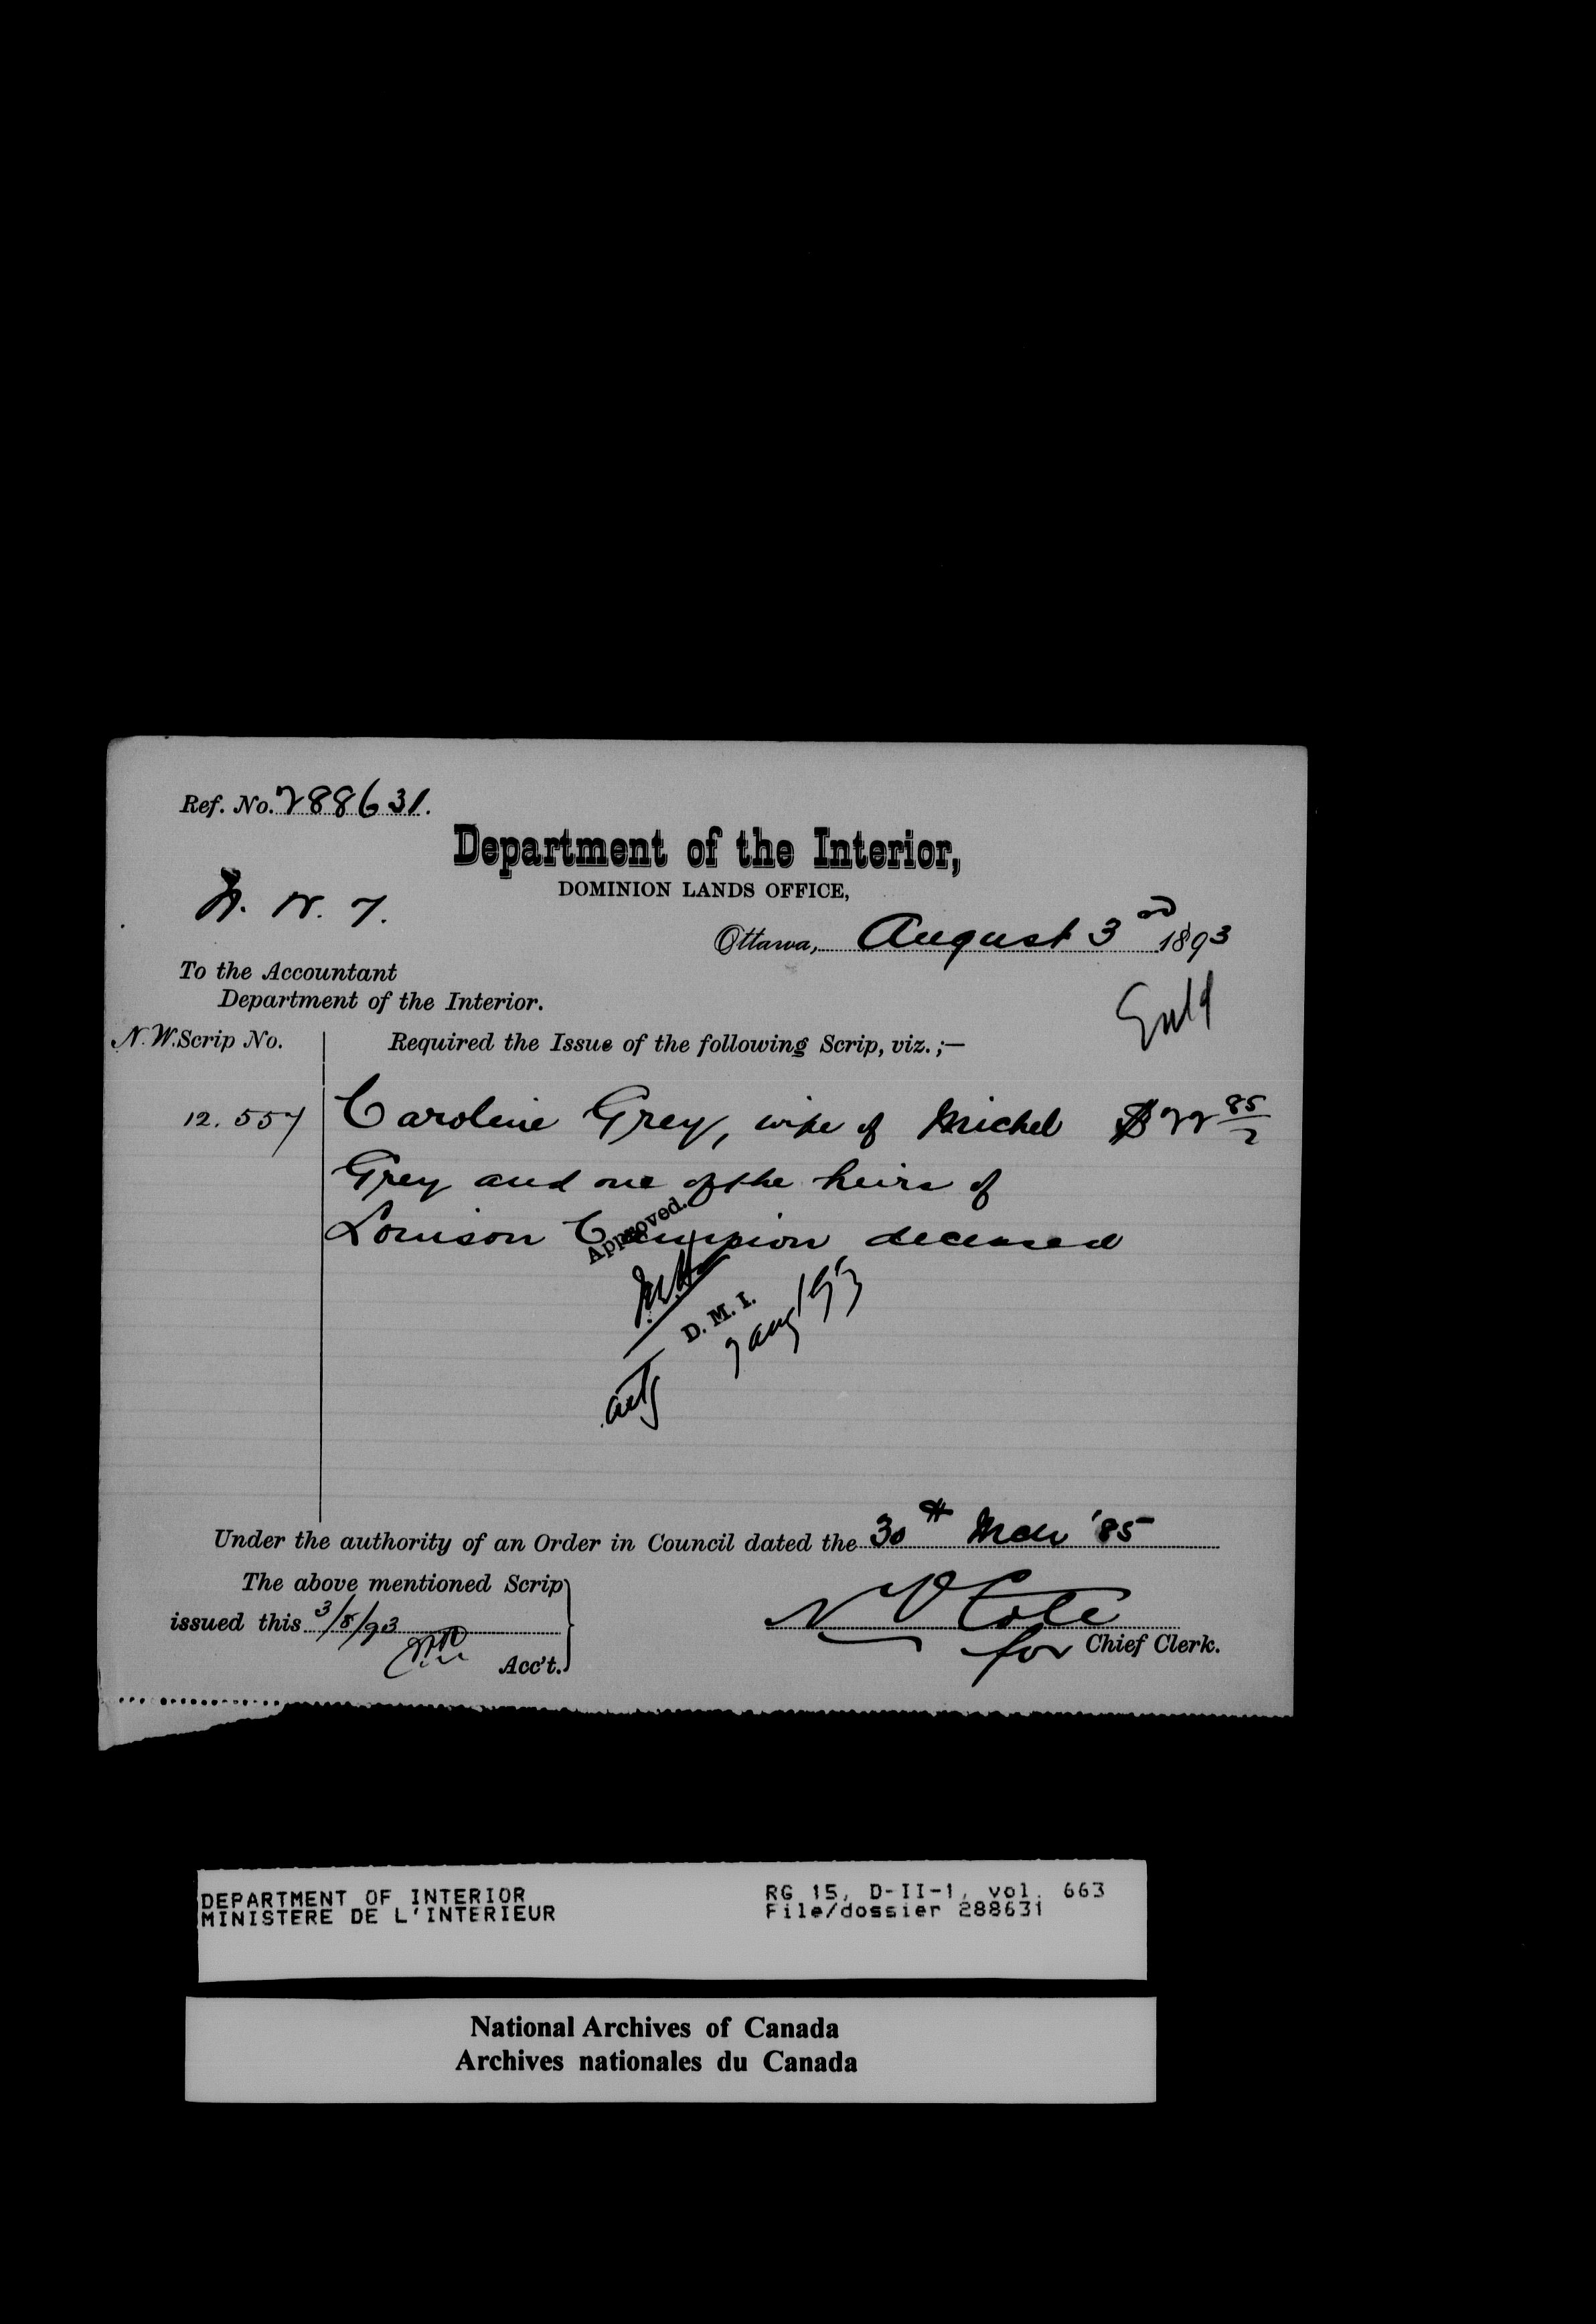 Ref. No. 288631.
Department of the Interior,
DOMINION LANDS OFFICE,
N. W. T.
Ottawa, August 3rd 1893
To the Accountant
Department of the Interior.
N. W. Scrip No.
Required the Issue of the following Scrip, viz.;—
12.557
Caroline Grey, wife of Michel $22 85
Grey and one of the heirs of
Louison Campion deceased
Approved.
D. M. I.
aug/93
Under the authority of an Order in Council dated the 30th Mar '85
The above mentioned Scrip
issued this 3/8/93
Acc't.
N O Cote
for Chief Clerk.
DEPARTMENT OF INTERIOR
MINISTERE DE L'INTERIEUR
RG 15, D-II-1, vol. 663
File/dossier 288631
National Archives of Canada
Archives nationales du Canada